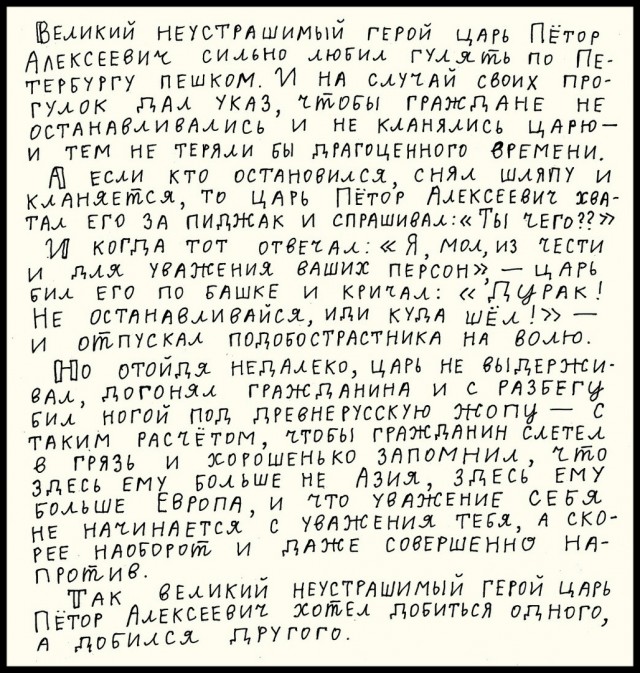 Великий неустрашимый герой царь Пётор
Алексеевич сильно любил гулять по Пе-
тербургу пешком. И на случай своих про-
гулок дал указ, чтобы граждане не
останавливались и не кланялись царю—
и тем не теряли бы драгоценного времени.
А если кто остановился, снял шляпу и
кланяется, то царь Пётор Алексеевич хва-
тал его за пиджак и спрашивал: «Ты чего??»
И когда тот отвечал: «Я, мол, из чести
и для уважения ваших персон», — царь
бил его по башке и кричал: «Дурак!
Не останавливайся, иди куда шёл!» —
и отпускал подобострастника на волю.
Но отойдя недалеко, царь не выдержи-
вал, догонял гражданина и с разбегу
бил ногой под древнерусскую жопу — с
таким расчётом, чтобы гражданин слетел
в грязь и хорошенько запомнил, что
здесь ему больше не Азия, здесь ему
больше Европа, и что уважение себя
не начинается с уважения тебя, а ско-
рее наоборот и даже совершенно на-
против.
Так великий неустрашимый герой царь
Пётор Алексеевич хотел добиться одного,
а добился другого.